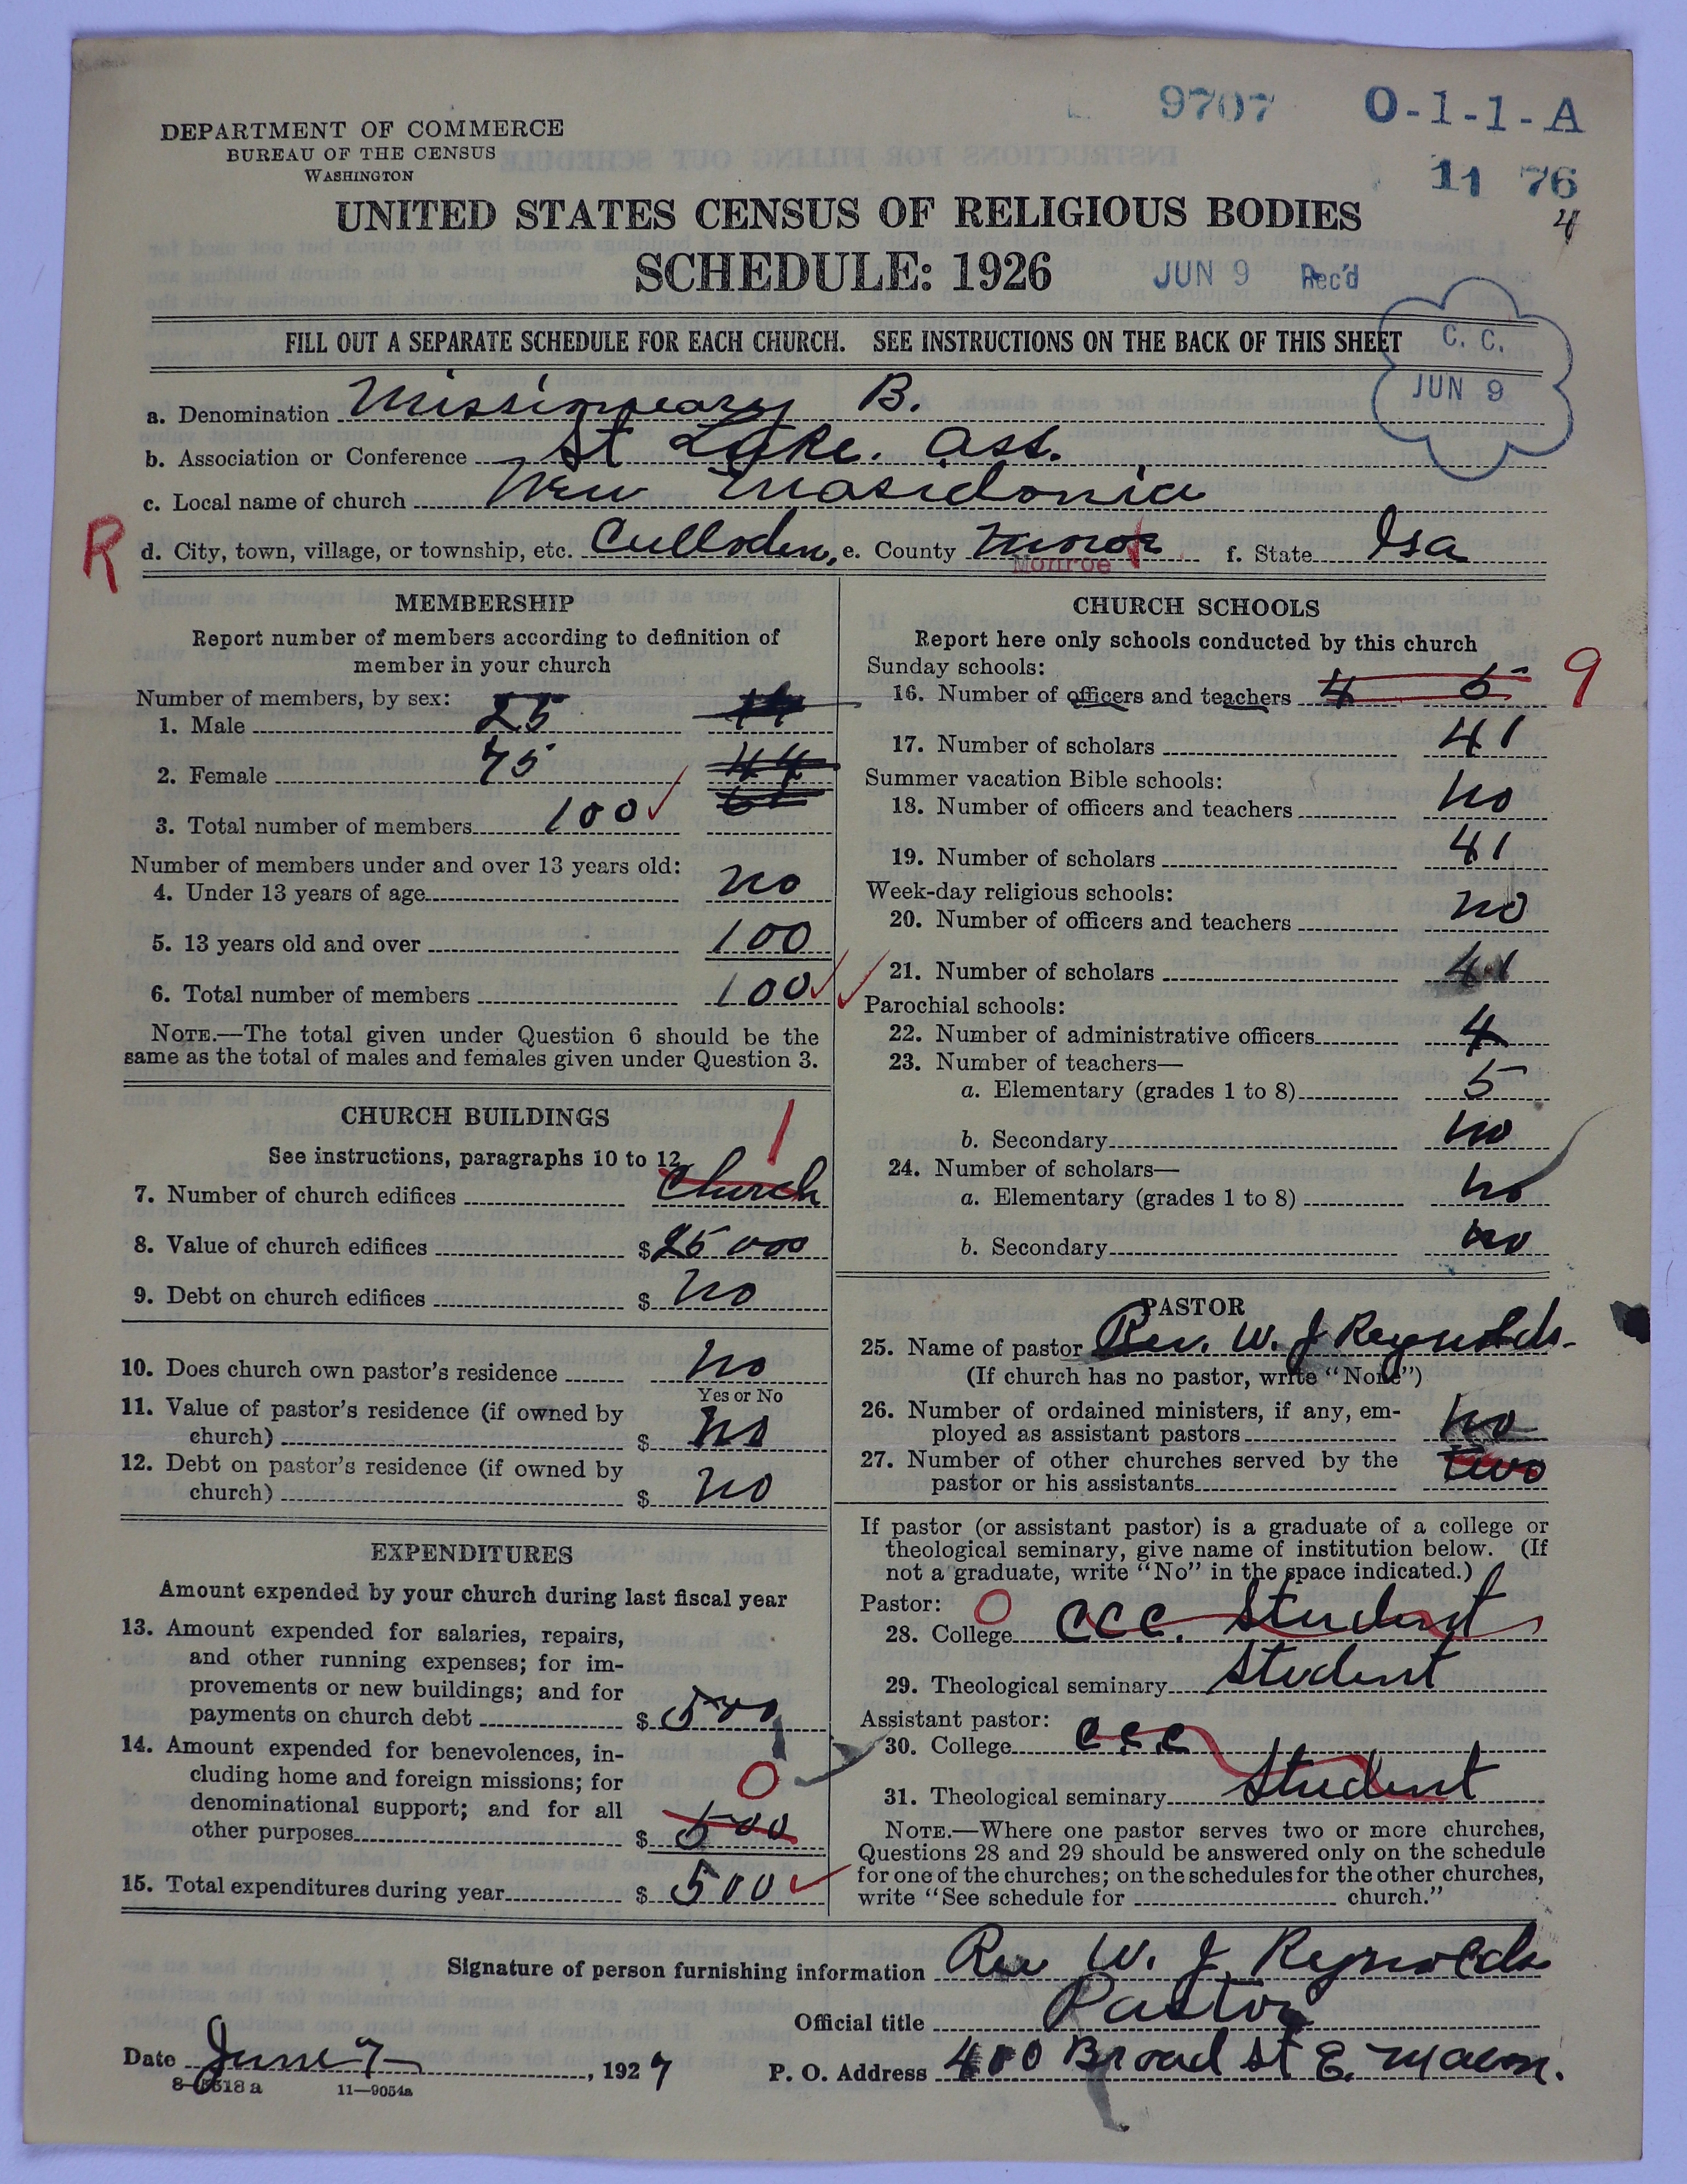 9707 O-1-1-A
11 76
4
DEPARTMENT OF COMMERCE
BUREAU OF THE CENSUS
WASHINGTON
UNITED STATES CENSUS OF RELIGIOUS BODIES
SCHEDULE: 1926
JUN 9 Rec'd
FILL OUT A SEPARATE SCHEDULE FOR EACH CHURCH. SEE INSTRUCTIONS ON THE BACK OF THIS SHEET
C. C.
JUN 9
a. Denomination Missionary B.
b. Association or Conference St Luke. ass.
c. Local name of church New Masidonia
R d. City, town, village, or township, etc. Culloden, e. County Monroe f. State Ga
MEMBERSHIP
Report number of members according to definition of
member in your church
Number of members, by sex:
1. Male 25
2. Female 75 44
3. Total number of members 100
Number of members under and over 13 years old:
4. Under 13 years of age no
5. 13 years old and over 100
6. Total number of members 100
NOTE.—The total given under Question 6 should be the
same as the total of males and females given under Question 3.
CHURCH BUILDINGS
See instructions, paragraphs 10 to 12 1
7. Number of church edifices Church
8. Value of church edifices $ 25 000
9. Debt on church edifices $ no
10. Does church own pastor's residence no
Yes or No
11. Value of pastor's residence (if owned by
church) $ no
12. Debt on pastor's residence (if owned by
church) $ no
EXPENDITURES
Amount expended by your church during last fiscal year
13. Amount expended for salaries, repairs,
and other running expenses; for im-
provements or new buildings; and for
payments on church debt $ 500
14. Amount expended for benevolences, in-
cluding home and foreign missions; for 0
denominational support; and for all
other purposes $ 500
15. Total expenditures during year $ 500
CHURCH SCHOOLS
Report here only schools conducted by this church
Sunday schools:
16. Number of officers and teachers 4 5 9
17. Number of scholars 41
Summer vacation Bible schools:
18. Number of officers and teachers no
19. Number of scholars 41
Week-day religious schools:
20. Number of officers and teachers no
21. Number of scholars 41
Parochial schools:
22. Number of administrative officers 4
23. Number of teachers—
a. Elementary (grades 1 to 8) 5
b. Secondary no
24. Number of scholars—
a. Elementary (grades 1 to 8) no
b. Secondary no
PASTOR
25. Name of pastor Rev. W. J Reynolds.
(If church has no pastor, write "None")
26. Number of ordained ministers, if any, em-
ployed as assistant pastors no
27. Number of other churches served by the
pastor or his assistants two
If pastor (or assistant pastor) is a graduate of a college or
theological seminary, give name of institution below. (If
not a graduate, write "No" in the space indicated.)
Pastor: 0
28. College CCC. Student
29. Theological seminary Student
Assistant pastor:
30. College CCC
31. Theological seminary Student
NOTE.—Where one pastor serves two or more churches,
Questions 28 and 29 should be answered only on the schedule
for one of the churches; on the schedules for the other churches,
write "See schedule for church."
Signature of person furnishing information Rev W. J. Reynolds
Official title Pastor
Date June 7, 1927 P. O. Address 400 Broad st E. Macon.
8-5518 a 11—9054a